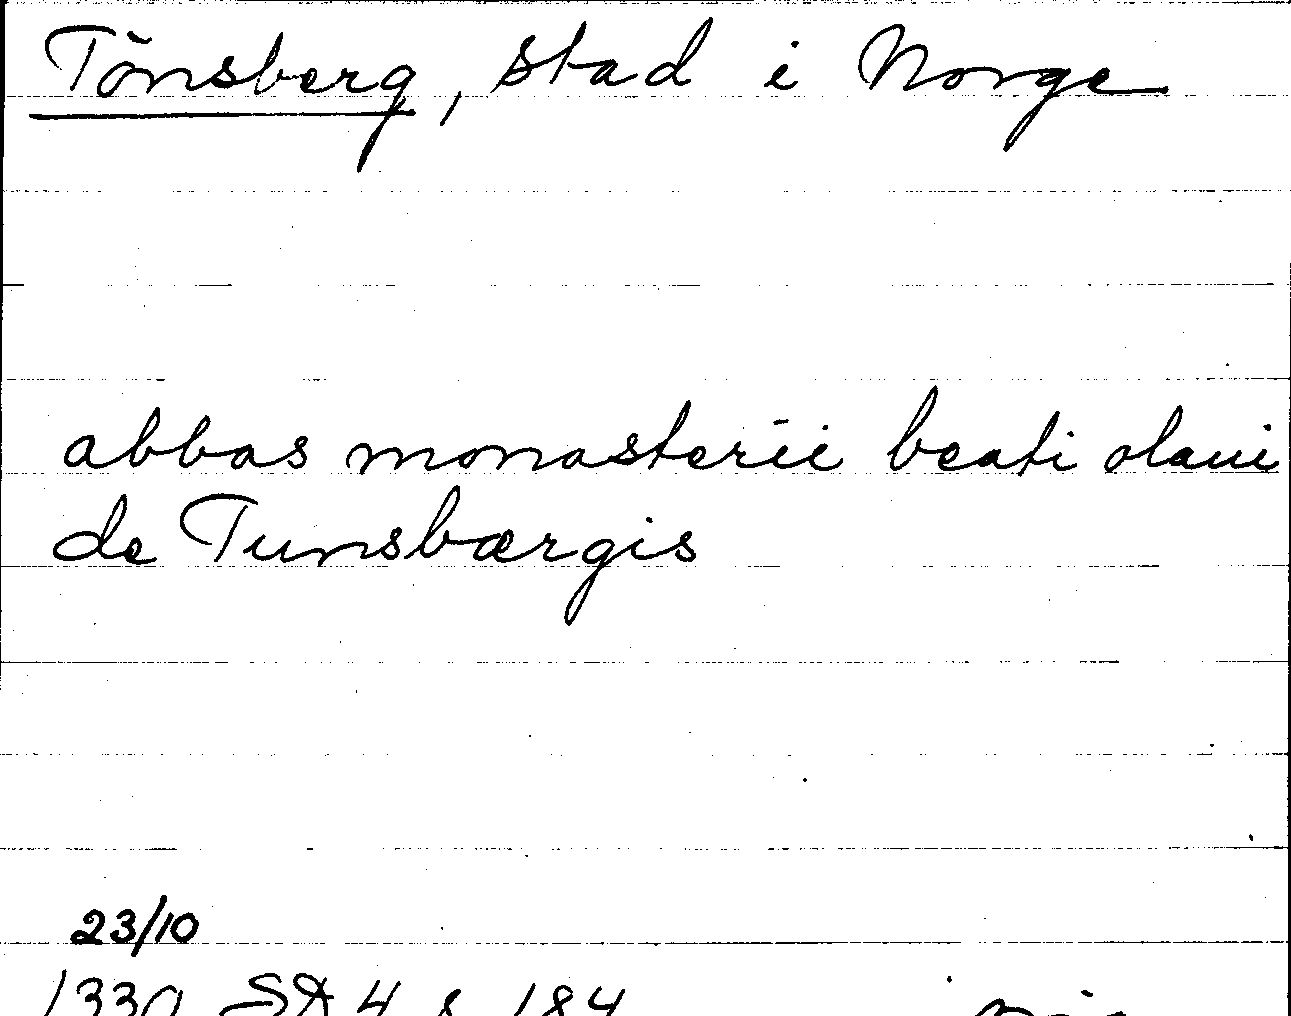 Tönsberg, stad i Norge
abbas monasterii beati olaui
de Tunsbærgis
23/10
1330 SD 4 s 184